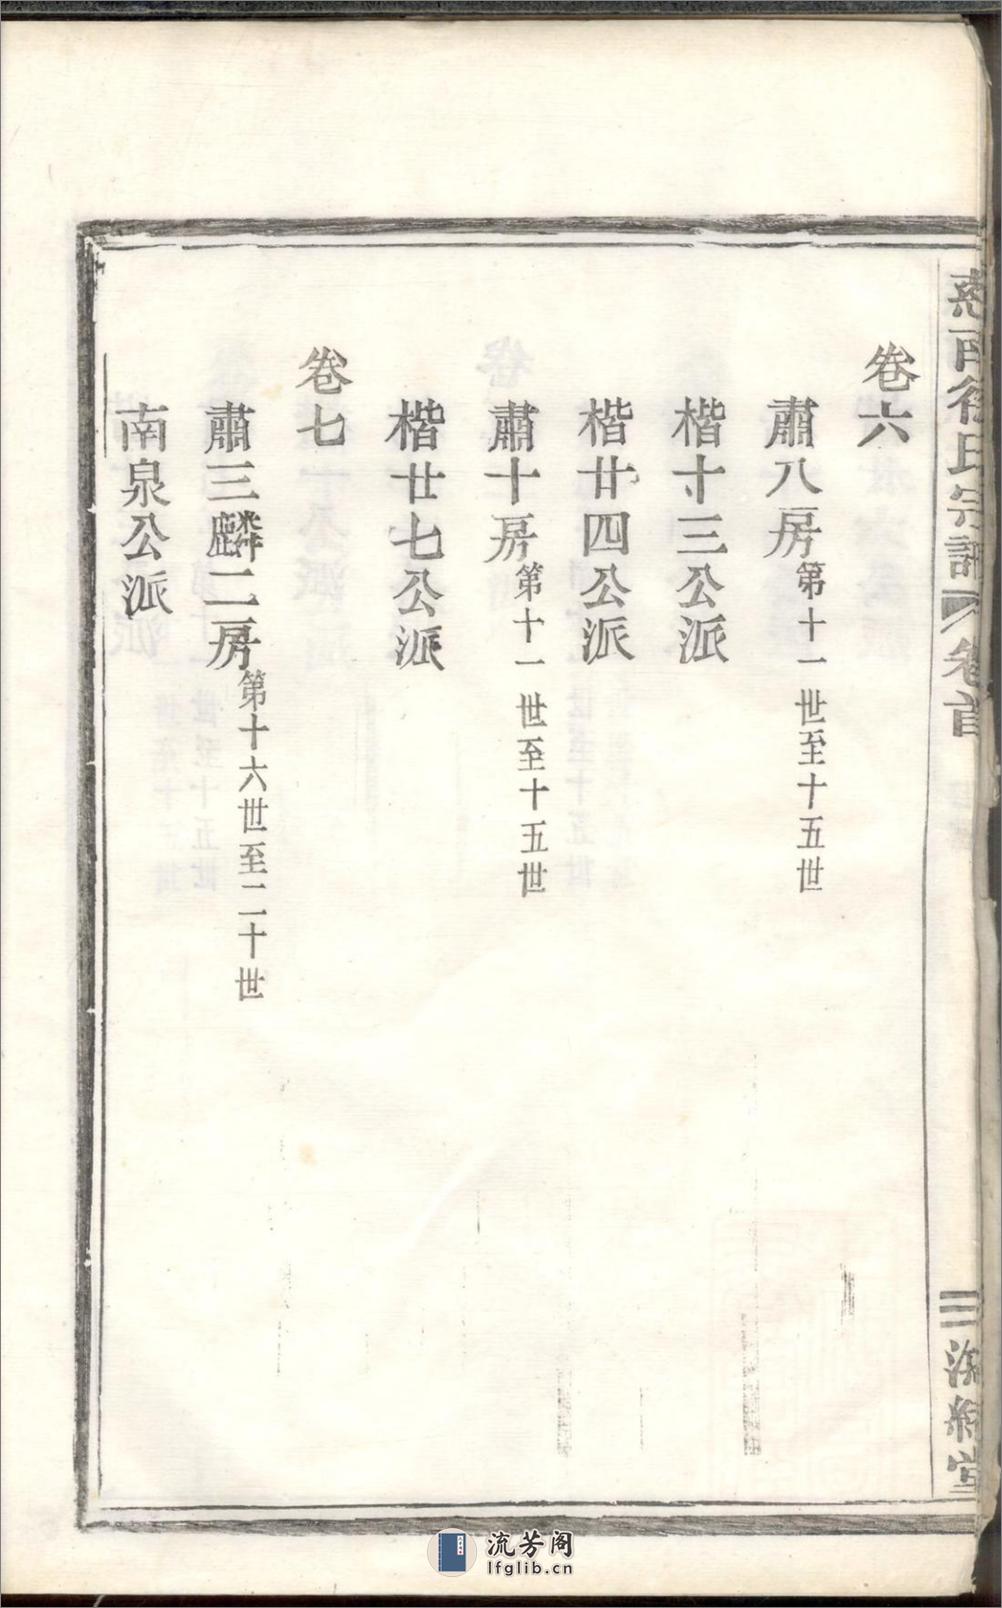 卷六
肅八房第十一世至十五世
楷十三公派
楷廿四公派
肅十房第十一世至十五世
楷廿七公派
卷七
肅三麟二房第十六世至二十世
南泉公派
徐氏宗譜 卷首
三
流芳阁
lfglib.cn